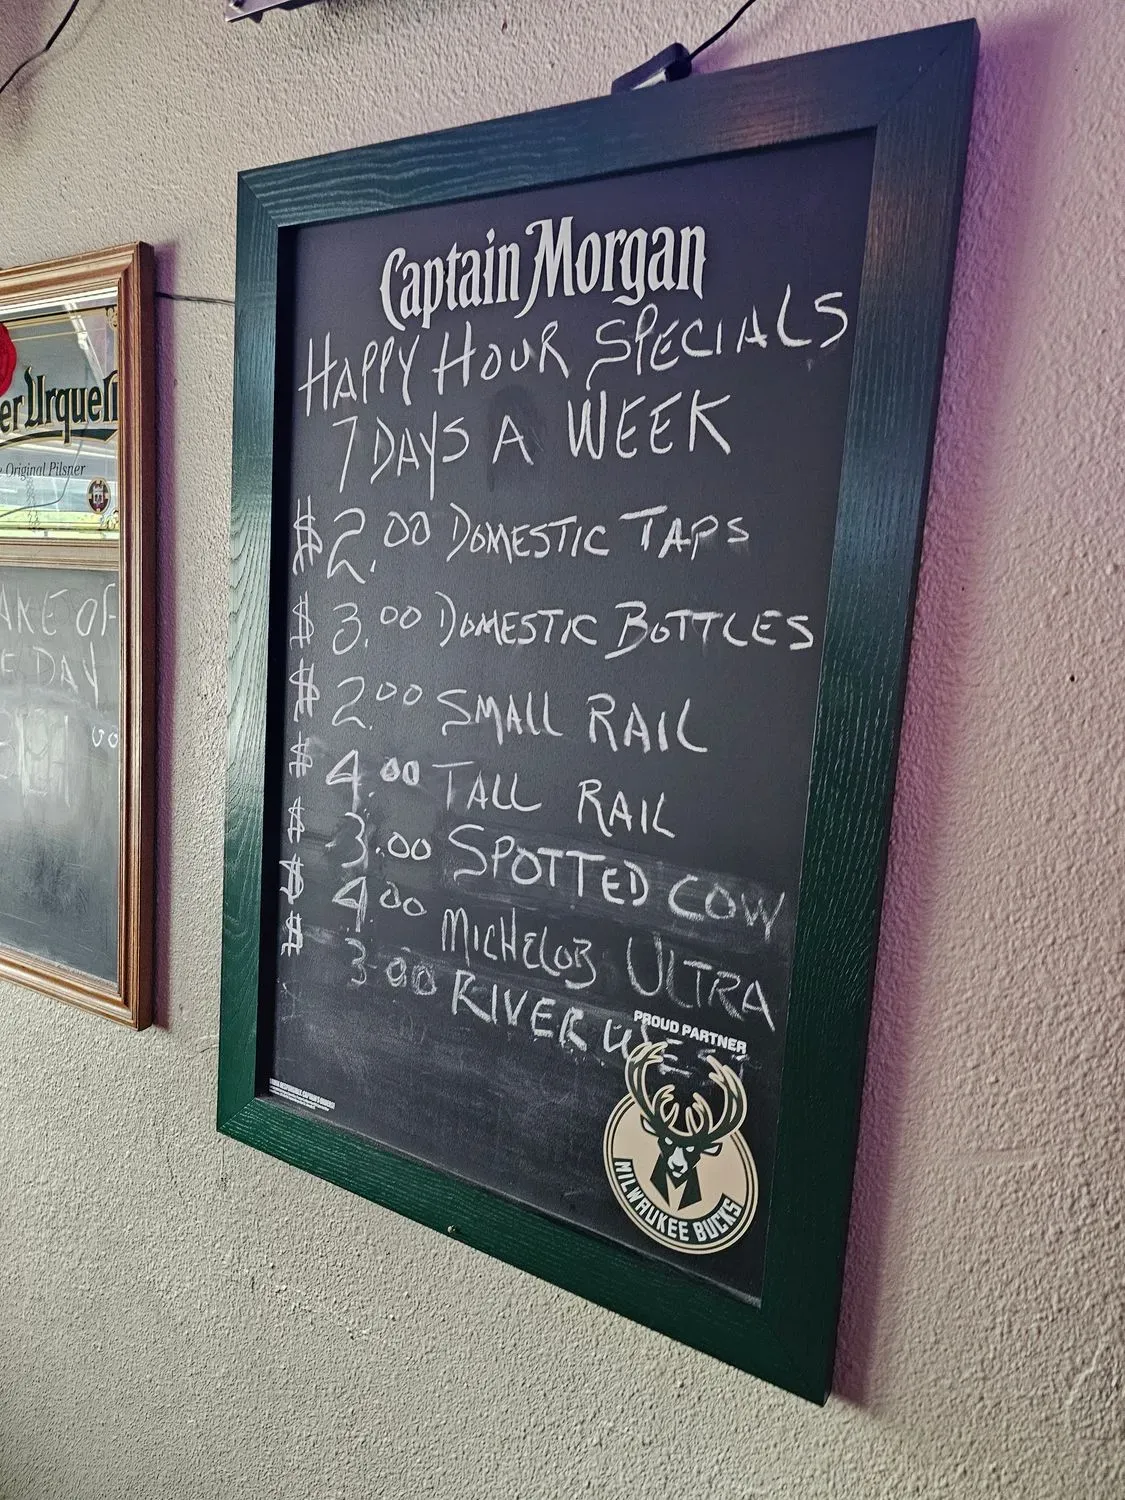 Captain Morgan
HAPPY HOUR SPECIALS
7 DAYS A WEEK
$2.00 DOMESTIC TAPS
$3.00 DOMESTIC BOTTLES
$2.00 SMALL RAIL
$4.00 TALL RAIL
$3.00 SPOTTED COW
$4.00 MICHELOB ULTRA
$3.00 RIVER WEST
PROUD PARTNER
MILWAUKEE BUCKS
er Urquell
Original Pilsner
AKE OF
E DAY